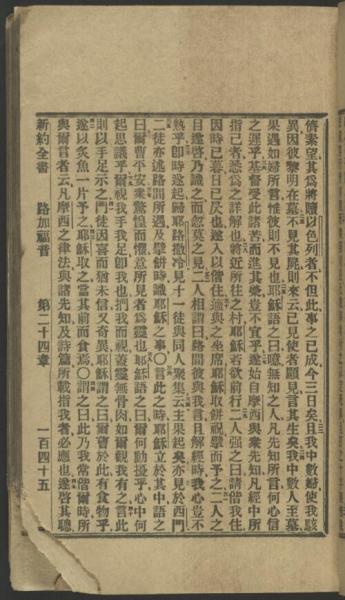 儕素望其爲將贖以色列者不但此事之已成今三日矣且我中數婦使我駭
異因彼黎明在墓不見其屍則來云已見使者顯見言其生矣我中數人至墓
果遇如婦所言惟彼則不見也耶穌語之曰噫無知之人凡先知所言何心信
之遲乎基督受此諸苦而進其榮豈不宜乎遂始自摩西與衆先知凡經中所
指己者悉爲之詳解也將近所往之村耶穌若欲前行二人强之曰請偕我住
因時已暮日已昃也遂入以偕住適與之坐席耶穌取餅祝擘而予之二人之
目遂啓乃識之而忽莫之見二人相謂曰路間彼與我言且解經時我心豈不
熱乎卽時遂起歸耶路撒冷見十一徒與同人聚集云主果起矣亦見於西門
二徒亦述路間所遇及擘餅時識耶穌之事〇言此之時耶穌立於其中語之
曰爾曹平安衆驚惶而懼意所見者爲靈也耶穌語之曰爾何勳擾乎心中何
起思議乎爾視我手我足卽我也捫我而視蓋靈無骨肉如爾觀我有之言此
則以手足示之門徒因喜而猶未信又奇異耶穌謂之曰爾曹於此有食物乎
遂以炙魚一片予之耶穌取之當其前而食焉〇謂之曰此乃我常偕爾時所
與爾言者云凡摩西之律法與諸先知及詩篇所載指我者必應也遂啓其聰
新約全書　路加福音　第二十四章　一百四十五